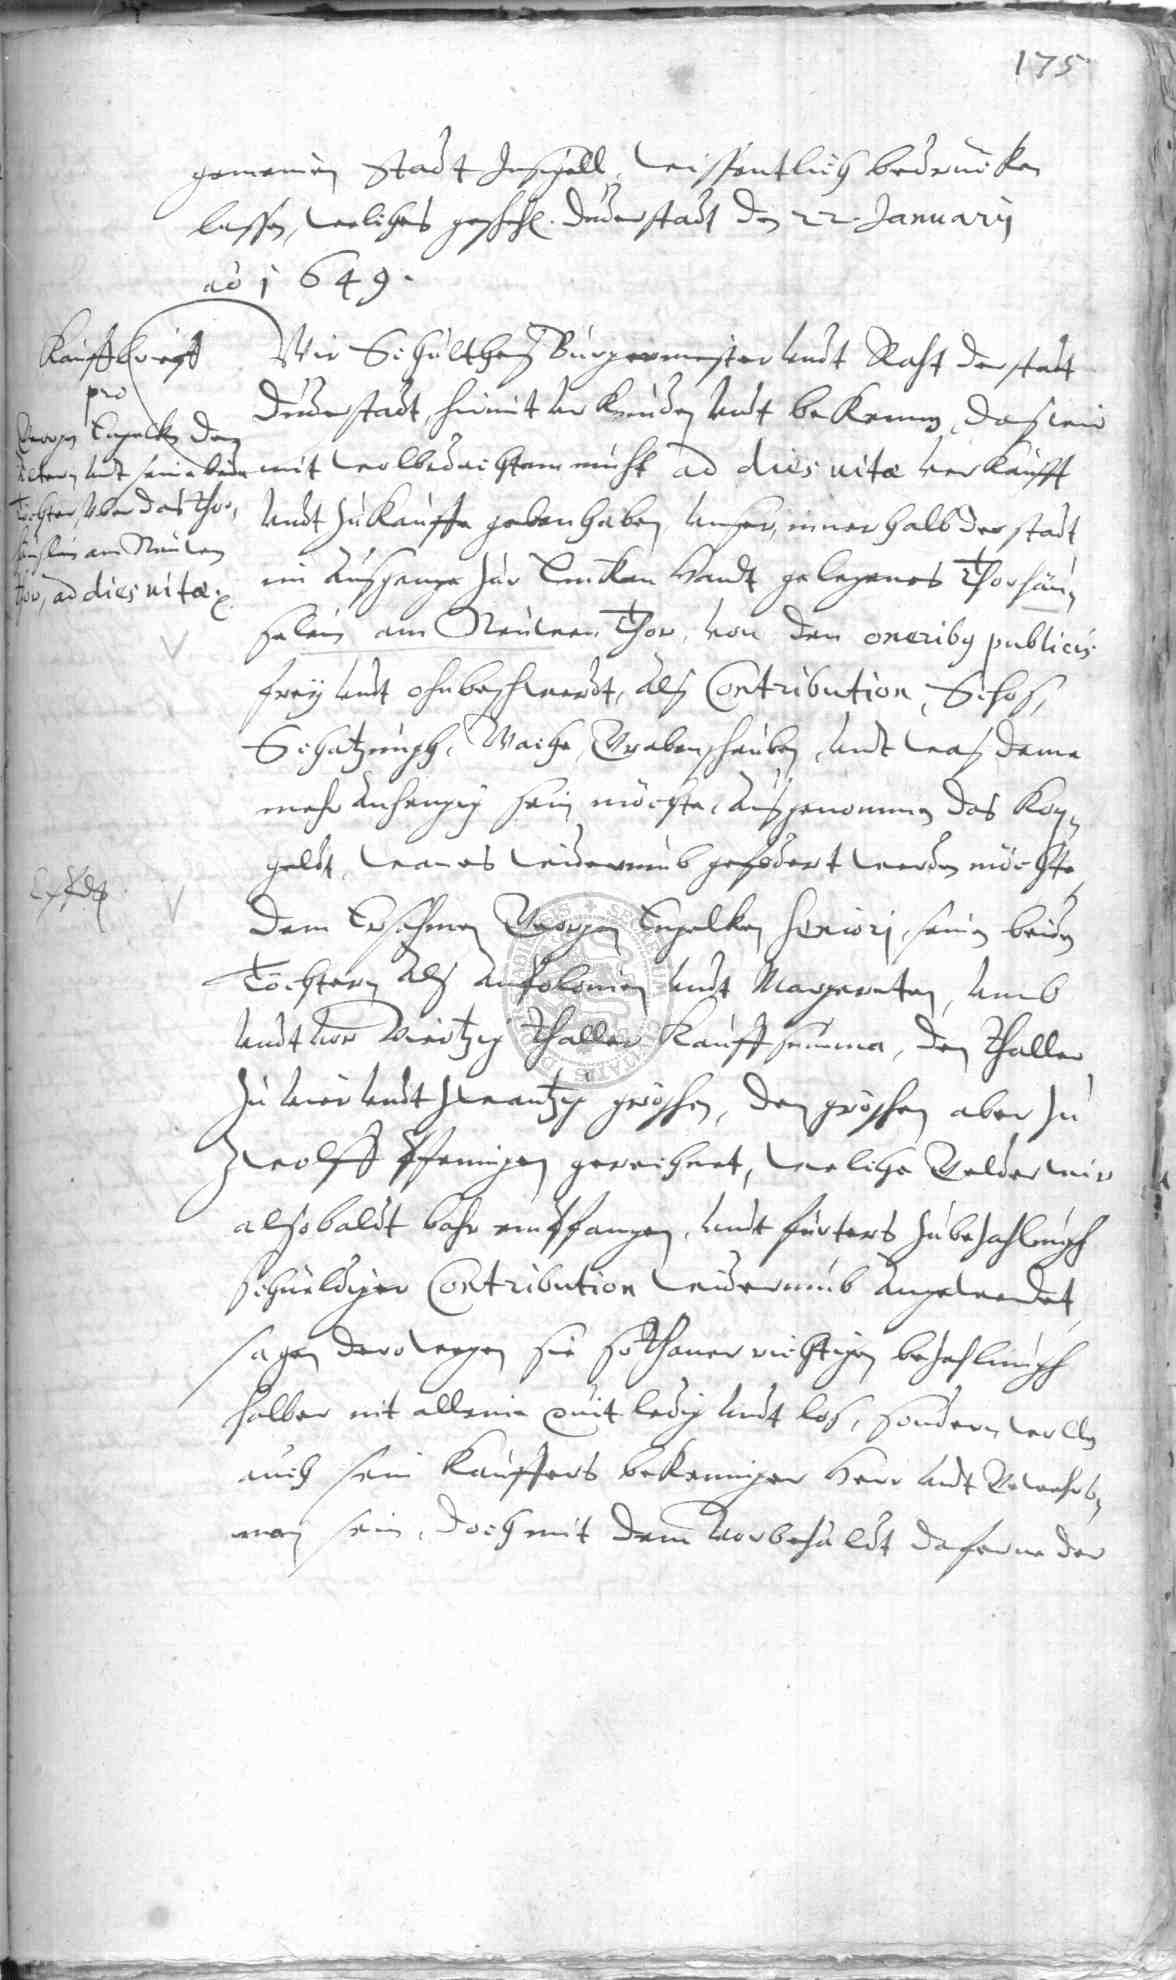 175
gemeinen Stadt Insigell, wissentlich bedrucken
lassen, welches geschehen. Duderstadt den 22. January
ao 1649.
Kauffbrieff
pro
Georgen Engelken dem
eltern undt seine beide
Töchter, über das Thor,
heuslin am Neuen
Thor, ad dies vitæ.
Wir Schultheß Bürgermeister undt Raht der stadt
Duderstadt, hiemit urkunden undt bekennen, daß wir
mit wolbedachtem muht ad dies vitæ verkaufft
undt zu kauffe geben haben, unser, innerhalb der stadt
im ausgange zur Lincken handt gelegenes Thorhäu,
selein am Neuen Thor, von den oneribus publicis
frey undt ohnbeschwerdt, alß Contribution, Schoß,
Schatzungh, Wache, Grabenschauben, undt waß deme
mehr anhengig sein möchte, ausgenommen das
geldt, wan es widerumb gefodert werden möchte,
dem Ersamen Georgen Engelken seniori, seinen beiden
Töchtern alß undt Margareten, umb
undt vor Viertzig Thaller Kauffsumma, den Thaller
zu vier undt zwantzig groschen, den groschen aber zu
Zwolff Pfennigen gerechnet, welche Gelder wir
alsobaldt bahr empfangen, undt fürters zu bezahlungh
schueldiger Contribution widerumb angewendet,
sagen derowegen sie sothaner richtigen bezahlungh
halber nit alleine quit ledig undt loß, sondern wollen
auch sein Kauffers bekenniger Herr undt Gewehrs,
man sein, doch mit dem vorbehaldt daferne der